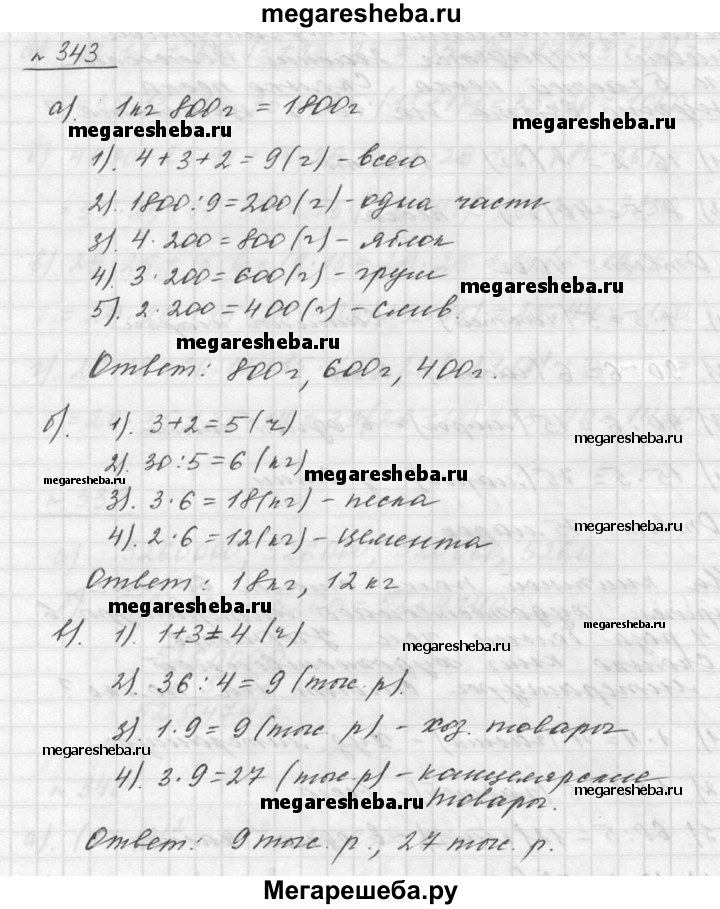 megaresheba.ru
№ 343
а). 1кг 800г = 1800г
megaresheba.ru
megaresheba.ru
1). 4+3+2=9(г) - всего
2). 1800:9=200(г) - одна части
3). 4·200=800(г) - яблок
4). 3·200=600(г) - груш
megaresheba.ru
5). 2·200=400(г) - слив.
megaresheba.ru
Ответ: 800г, 600г, 400г.
б). 1). 3+2=5(ч)
megaresheba.ru
2). 30:5=6(кг)
megaresheba.ru
megaresheba.ru
3). 3·6=18(кг) - песка
4). 2·6=12(кг) - цемента
Ответ: 18кг, 12кг
megaresheba.ru
megaresheba.ru
в). 1). 1+3=4(ч)
megaresheba.ru
2). 36:4=9(тыс. р).
3). 1·9=9(тыс. р). - хоз. товары
megaresheba.ru
4). 3·9=27(тыс р) - канцелярские
megaresheba.ru
megaresheba.ru
товары.
Ответ: 9тыс. р., 27тыс. р.
Мегарешеба.ру